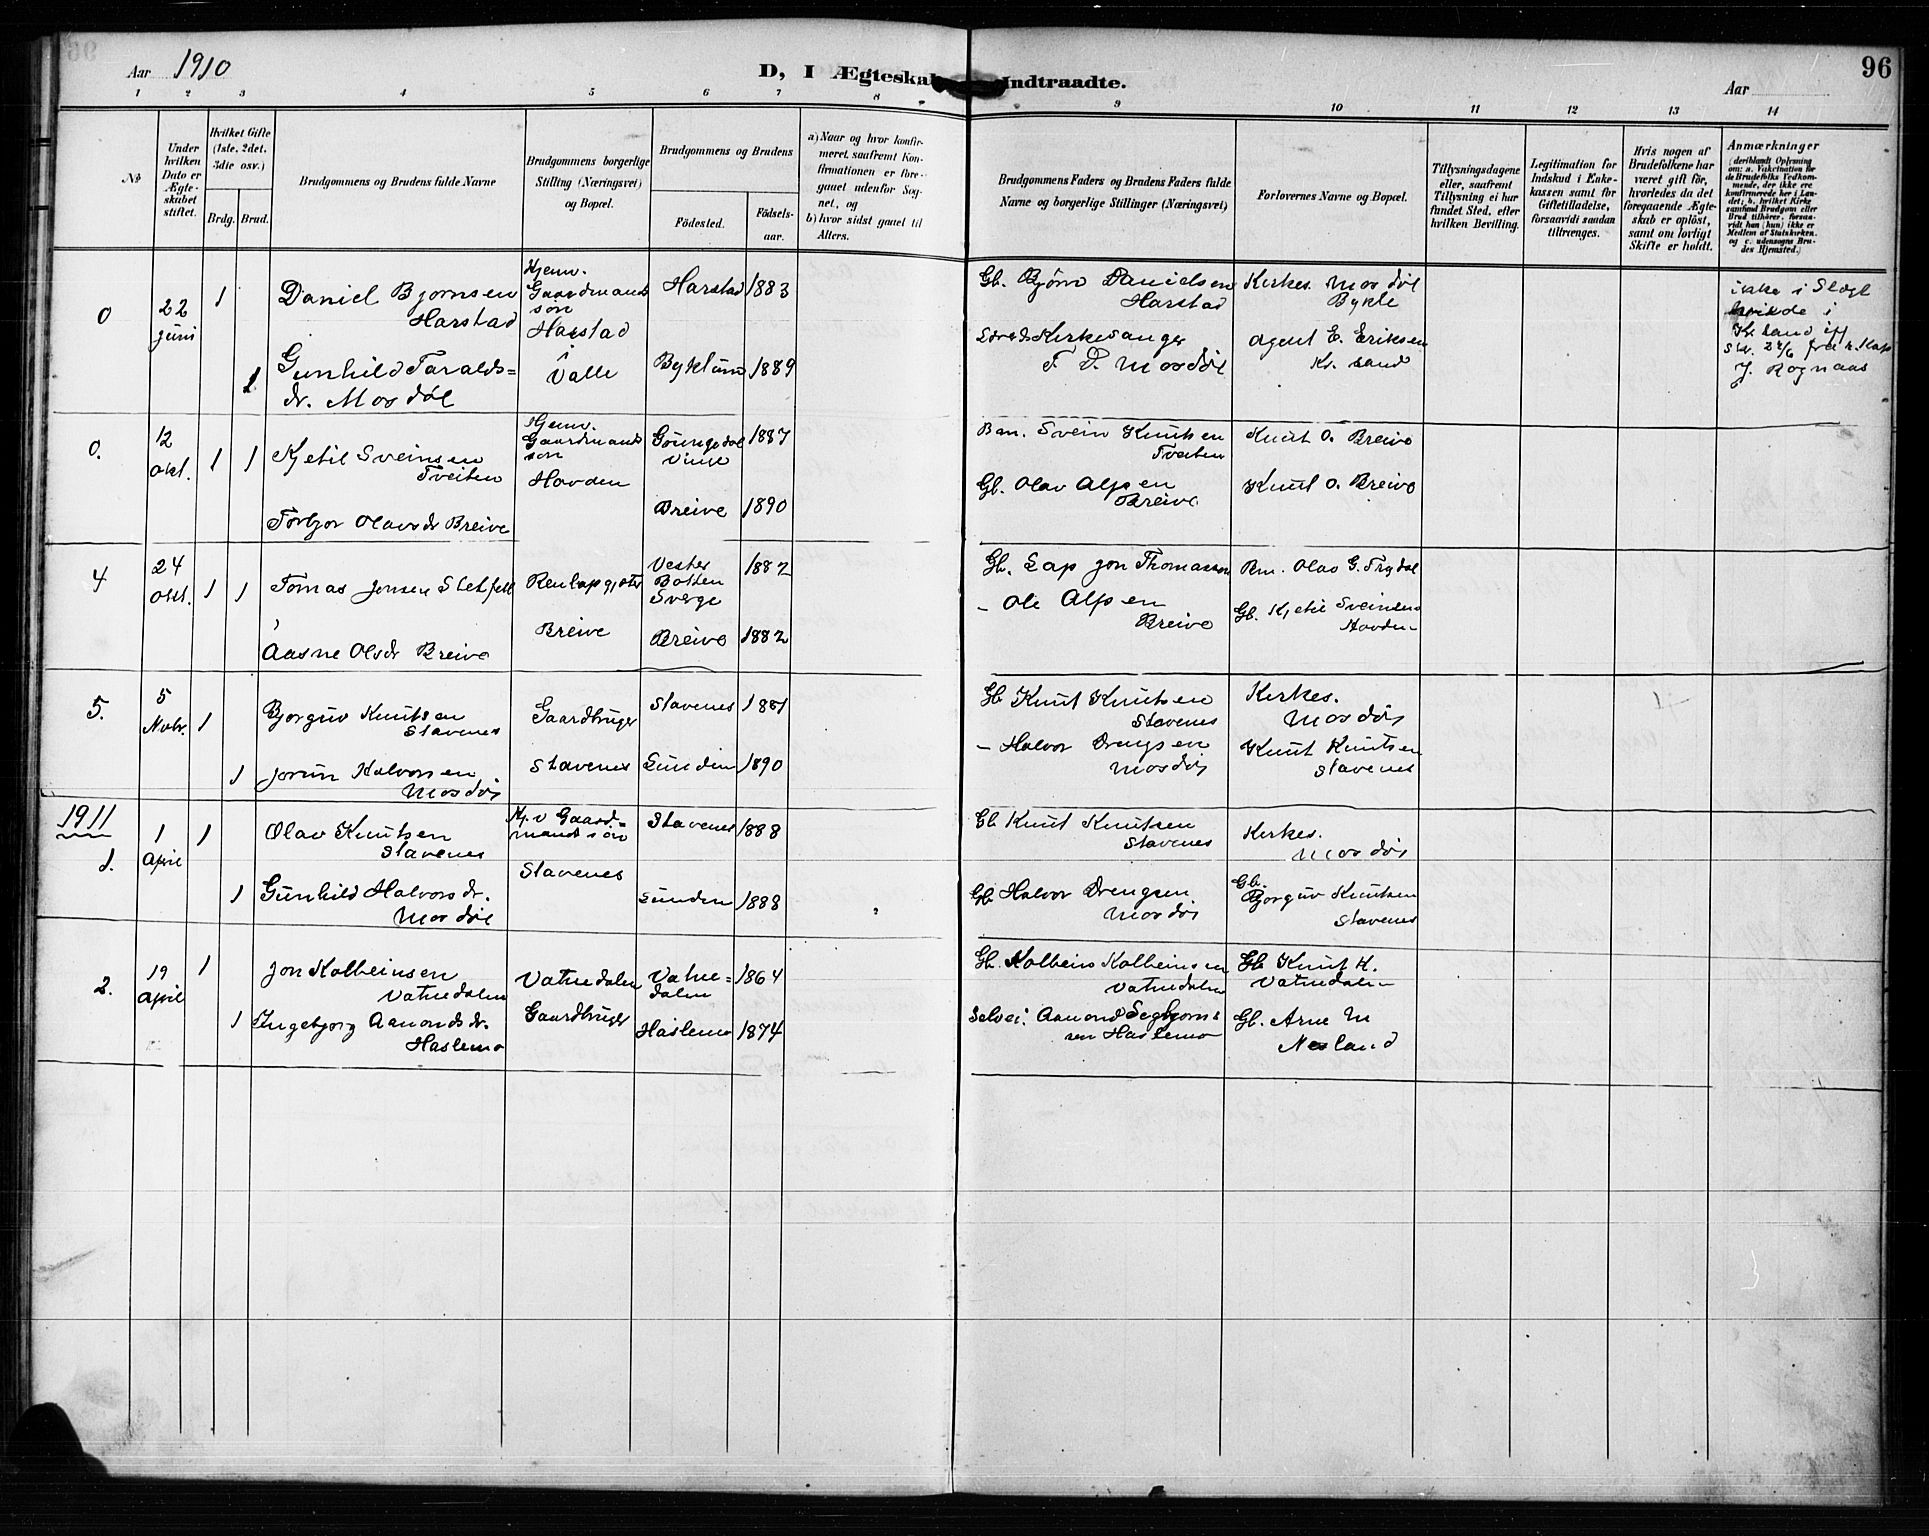 Aar 1910
D, I Ægteskab Indtraadte.
96
Aar
1 2 3 4 5 6 7 8 9 10 11 12 13 14
No
Under hvilken Dato er Ægteskabet stiftet.
Hvilket Gifte (1ste, 2det, 3die osv.)
Brdg. Brud.
Brudgommens og Brudens fulde Navne
Brudgommens borgerlige Stilling (Næringsvei) og Bopæl.
Brudgommens og Brudens
Fødested.
Fødsels-aar.
a) Naar og hvor konfir-
meret, saafremt Kon-
firmationen er fore-
gaaet udenfor Sog-
net, og
b) hvor sidst gaaet til
Alters.
Brudgommens Faders og Brudens Faders fulde
Navne og borgerlige Stillinger (Næringsvei)
Forlovernes Navne og Bopæl.
Tillysningsdagene
eller, saafremt
Tillysning ei har
fundet Sted, efter
hvilken Bevilling.
Legitimation for
Indskud i Enke-
kassen samt for
Giftetilladelse,
forsaavidt saadan
tiltrænges.
Hvis nogen af
Brudefolkene har
været gift før,
hvorledes da det
foregaaende Ægte-
skab er opløst,
samt om lovligt
Skifte er holdt.
Anmærkninger
(deriblandt Oplysning
om: a. Vakcination for
de Brudefolks Vedkom-
mende, der ikke ere
konfirmerede her i Lan-
det; b. hvilket Kirke
samfund Brudgom eller
Brud tilhører, forsaa-
vidt han (hun) ikke er
Medlem af Statskirken,
og c. udensogns Bru-
des Hjemsted.)
0 22 juni 1
Daniel Bjørnsen
Harstad
Hjemv.
Gaardmands
søn
Harstad
i
Valle
Harstad 1883
Gb. Bjørn Danielsen
Harstad
Kirkes. Mosdøl
Bykle
ikke i Slægt
i
Kr. sand
J. Rognaas
1 Gunhild Taralds=
dr. Mosdøl
Byklum 1889
Kirkesanger
T. D. Mosdøl
Agent E. Eriksen
Kr. sand
0. 12 okt. 1 1
Kjetil Sveinsen
Tveiten
Hjemv.
Gaardmands
søn
Hovden
Grungedal
Vinje
1887
Bm. Svein Knutsen
Tveiten
Knut O. Breive
Torbjør Olavsdr Breive
Breive 1890
Gb. Olav Alfsen
Breive
Knut O. Breive
4 24 okt. 1 1
Tomas Jonsen Sletfjell
Renlapgjæter
Breive
Vester
Botten
Sverge
1882
Gb. Lap Jon Thomassen
Bm. Olav G. Trydal
Aasne Olsdr Breive
Breive 1882
- Ole Alfsen
Breive
Gb. Kjetil Sveinsen
Hovden
5. 5 Novbr. 1
Bjørguv Knutsen
Stavenes
Gaardbruger
Stavenes
Stavenes 1881
Gb Knut Knutsen
Stavenes
Kirkes.
Mosdøl
1 Jorun Halvorsen
Mosdøl
Sunden 1890
- Halvor Drengsen
Mosdøl
Knut Knutsen
Stavenes
1911
1. 1 April 1
Olav Knutsen
Stavenes
Hj. v Gaard=
mandssøn
Stavenes
Stavenes 1888
Gb Knut Knutsen
Stavenes
Kirkes.
Mosdøl
1 Gunhild Halvorsdr.
Mosdøl
Sunden 1888
Gb Halvor Drengsen
Mosdøl
Gb.
Bjørguv Knutsen
Stavenes
2. 19 April 1
Jon Kolbeinsen
Vatnedalen
Vatnedalen
Gaardbruger
Vatne=
dalen
1864
Gb. Kolbein Kolbeinsen
Vatnedalen
Gb Knut K.
Vatnedalen
1 Ingebjørg Aamondsdr.
Haslemo
Haslemo 1874
Selvei. Aamond Segbjørn
sen Haslemo
Gb. Arne M
Nesland